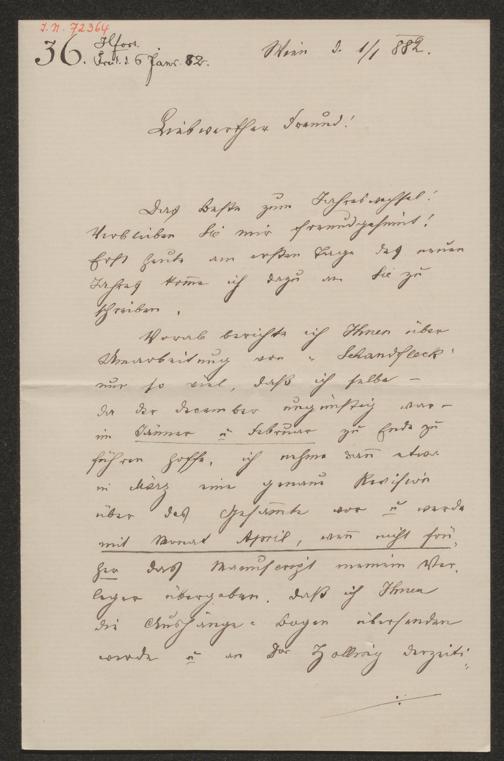 I.N. 72364
36.
6 Janr. 82.
Wien d. 1/1 882.
Liebwerther Freund!
Das Beste zum Jahreswechsel!
Verbleiben Sie mir freundgesinnt!
Erst heute am ersten Tage des neuen
Jahres komme ich dazu an Sie zu
schreiben.
Vorab berichte ich Ihnen über
Umarbeitung von „Schandfleck“
nur so viel, daß ich selbe –
da der December ungünstig war –
im Jänner u Februar zu Ende zu
führen hoffe, ich nehme dann etwa
in März eine genaue Revision
über das Gesammte vor u werde
mit Monat April, wenn nicht frü-
her das Manuscript meinem Ver-
leger übergeben. daß ich Ihnen
die Aushänge-Bogen übersenden
werde u an Dr derzeiti-